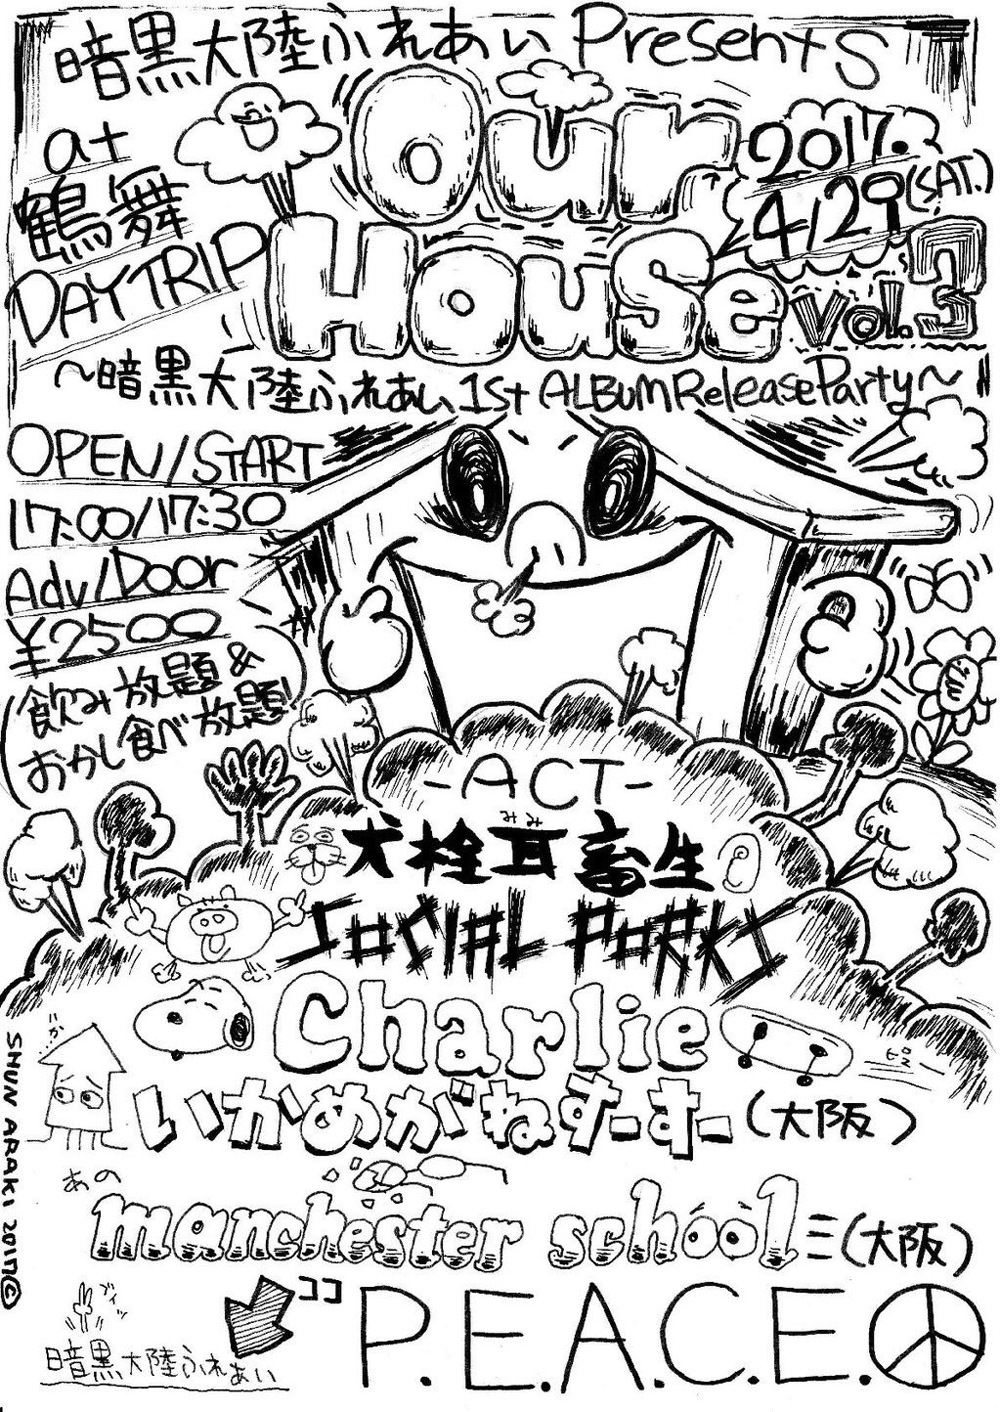 暗黒大陸ふれあい Presents
at
鶴舞
DAYTRIP
Our
House
2017.
4/29(SAT.)
Vol.3
～暗黒大陸ふれあい 1st ALBUM Release Party～
OPEN/START
17:00/17:30
Adv/Door
¥2500
飲み放題&
おかし食べ放題!
-ACT-
みみ
犬栓耳畜生
SOCIAL PORKS
Charlie
いかめがねすーすー(大阪)
あの
manchester school≡(大阪)
ココ
P.E.A.C.E.
暗黒大陸ふれあい
SHUN ARAKI 2017©